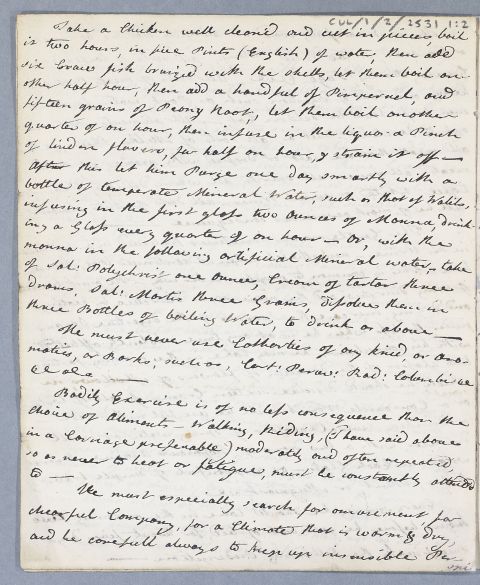 CUL/1/2/2531 1:2
Take a Chicken well cleand and cut in pieces, boil
it two hours, in five Pints (English) of water, then add
six Craw fish bruized with the shells, let them boil an-
other half hour, then add a handful of Pimpernel, and
fifteen grains of Peony Root, let them boil another
quarter of an hour, then infuse in the liquor a Pinch
of linden flowers, for half an hour, & strain it off —
After this let him Purge one day smartly with a
bottle of temperate Mineral Water, such as that of
infusing in the first glass two Ounces of Manna, drink-
ing a Glass every quarter of an hour — Or, with the
manna in the following artificial Mineral water, take
of Sal: Polychrist one Ounce, Cream of tartar three
drams, Sal: Martis three Grains, dissolve them in
three Bottles of boiling Water, to drink as above —
He must never use Catharties of any kind, or Aro-
matics, or Barks, such as, Cort: Peruv: Rad: Columbi &c
&c &c —
Bodily Exercise is of no less consequence than the
choice of Aliments — Walking, Riding, (I have said above
in a Carriage preferable) moderately and often repeated,
so as never to heat or fatigue, must be constantly attended
to —
He must especially search for amusement for
chearful Company, for a Climate that is warm & dry,
and be carefull always to keep up insensible Per-